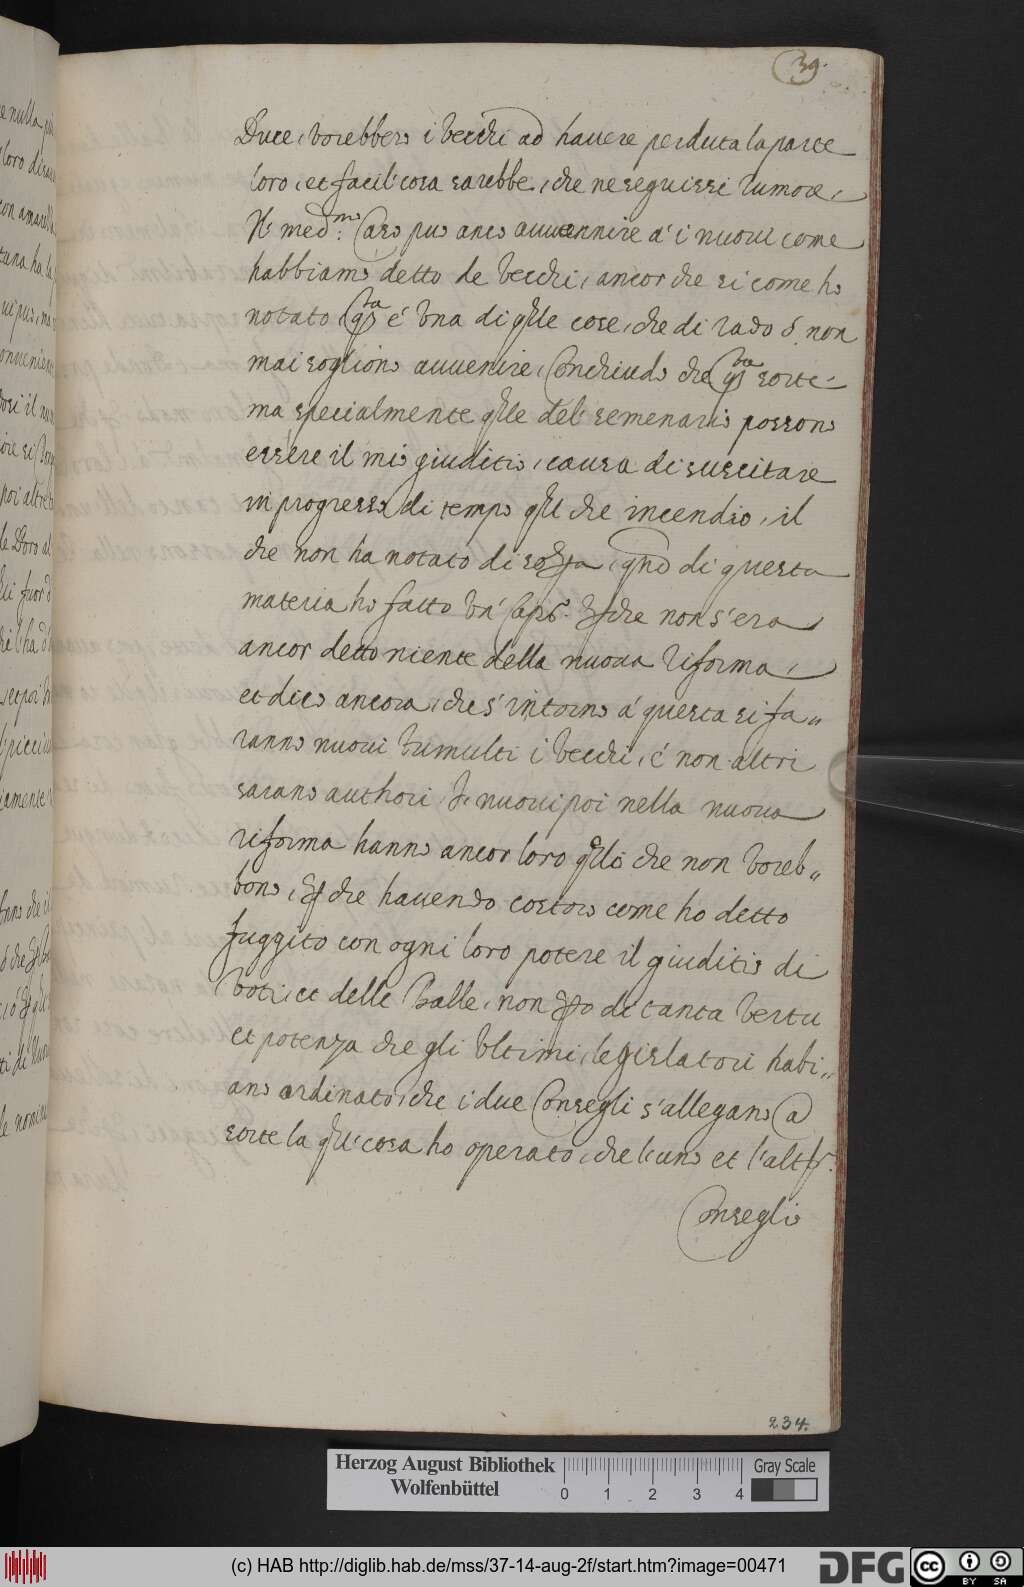 39.
Duce, vorebbero i vecchi ad hauere perduta la parte
loro, et facil' cosa sarebbe, che ne seguissi rumore,
Il med.mo Caso puo anco auuennire a' i nuoui come
habbiamo detto de vecchi, ancor che si come ho
notato qsta é una di qlle cose, che di rado ó non
mai sogliono auuenire, Conchiudo che qsta sorte
ma specialmente qlle del' semenario possono
essere il mio giuditio, causa di suscitare
in progresso di tempo ql che incendio, il
che non ha notato di sopra, qndo di questa
materia ho fatto un' Capo. perche non s'era
ancor detto niente della nuoua riforma,
et dico ancora, che s' intorno á questa si fa„
ranno nuoui tumulti i vecchi, é non altri
sarano authori, I nuoui poi nella nuoua
riforma hanno ancor loro qllo che non voreb„
bono, perche hauendo costoro come ho detto
fuggito con ogni loro potere il giuditio di
voti, et delle Balle, non pero di tanta vertu
et potenza che gli ultimi, legislatori habi„
ano ordinato, che i due Consegli s'allegano a
sorte la qul' cosa ho operato, che l'uno et l'altr.
Consegli
234.
Herzog August Bibliothek
Wolfenbüttel
0 1 2 3 4
Gray Scale
(c) HAB http://diglib.hab.de/mss/37-14-aug-2f/start.htm?image=00471
DFG
cc BY SA